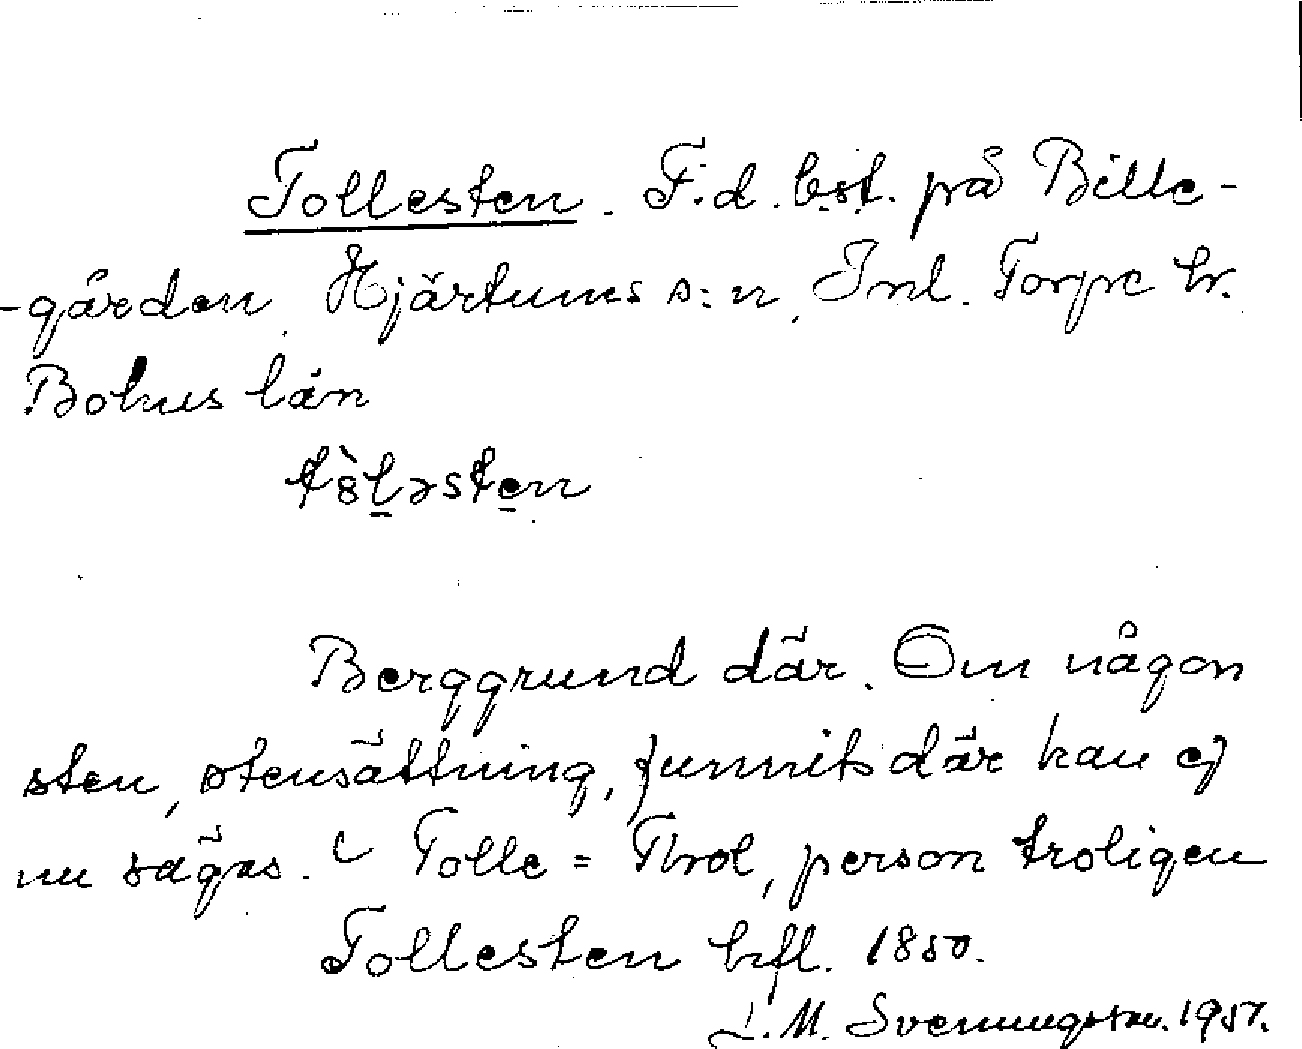 Tollesten. F.d. bst. på Bille-
-gården, Hjärtums s:n, Inl. Torpe hr.
Bohus län
Berggrund där. Om någon
sten, stensättning, funnits där kan ej
nu sägas. Tolle = Thol, person troligen
Tollesten hfl. 1850.
L.M. Svenungsson. 1957.